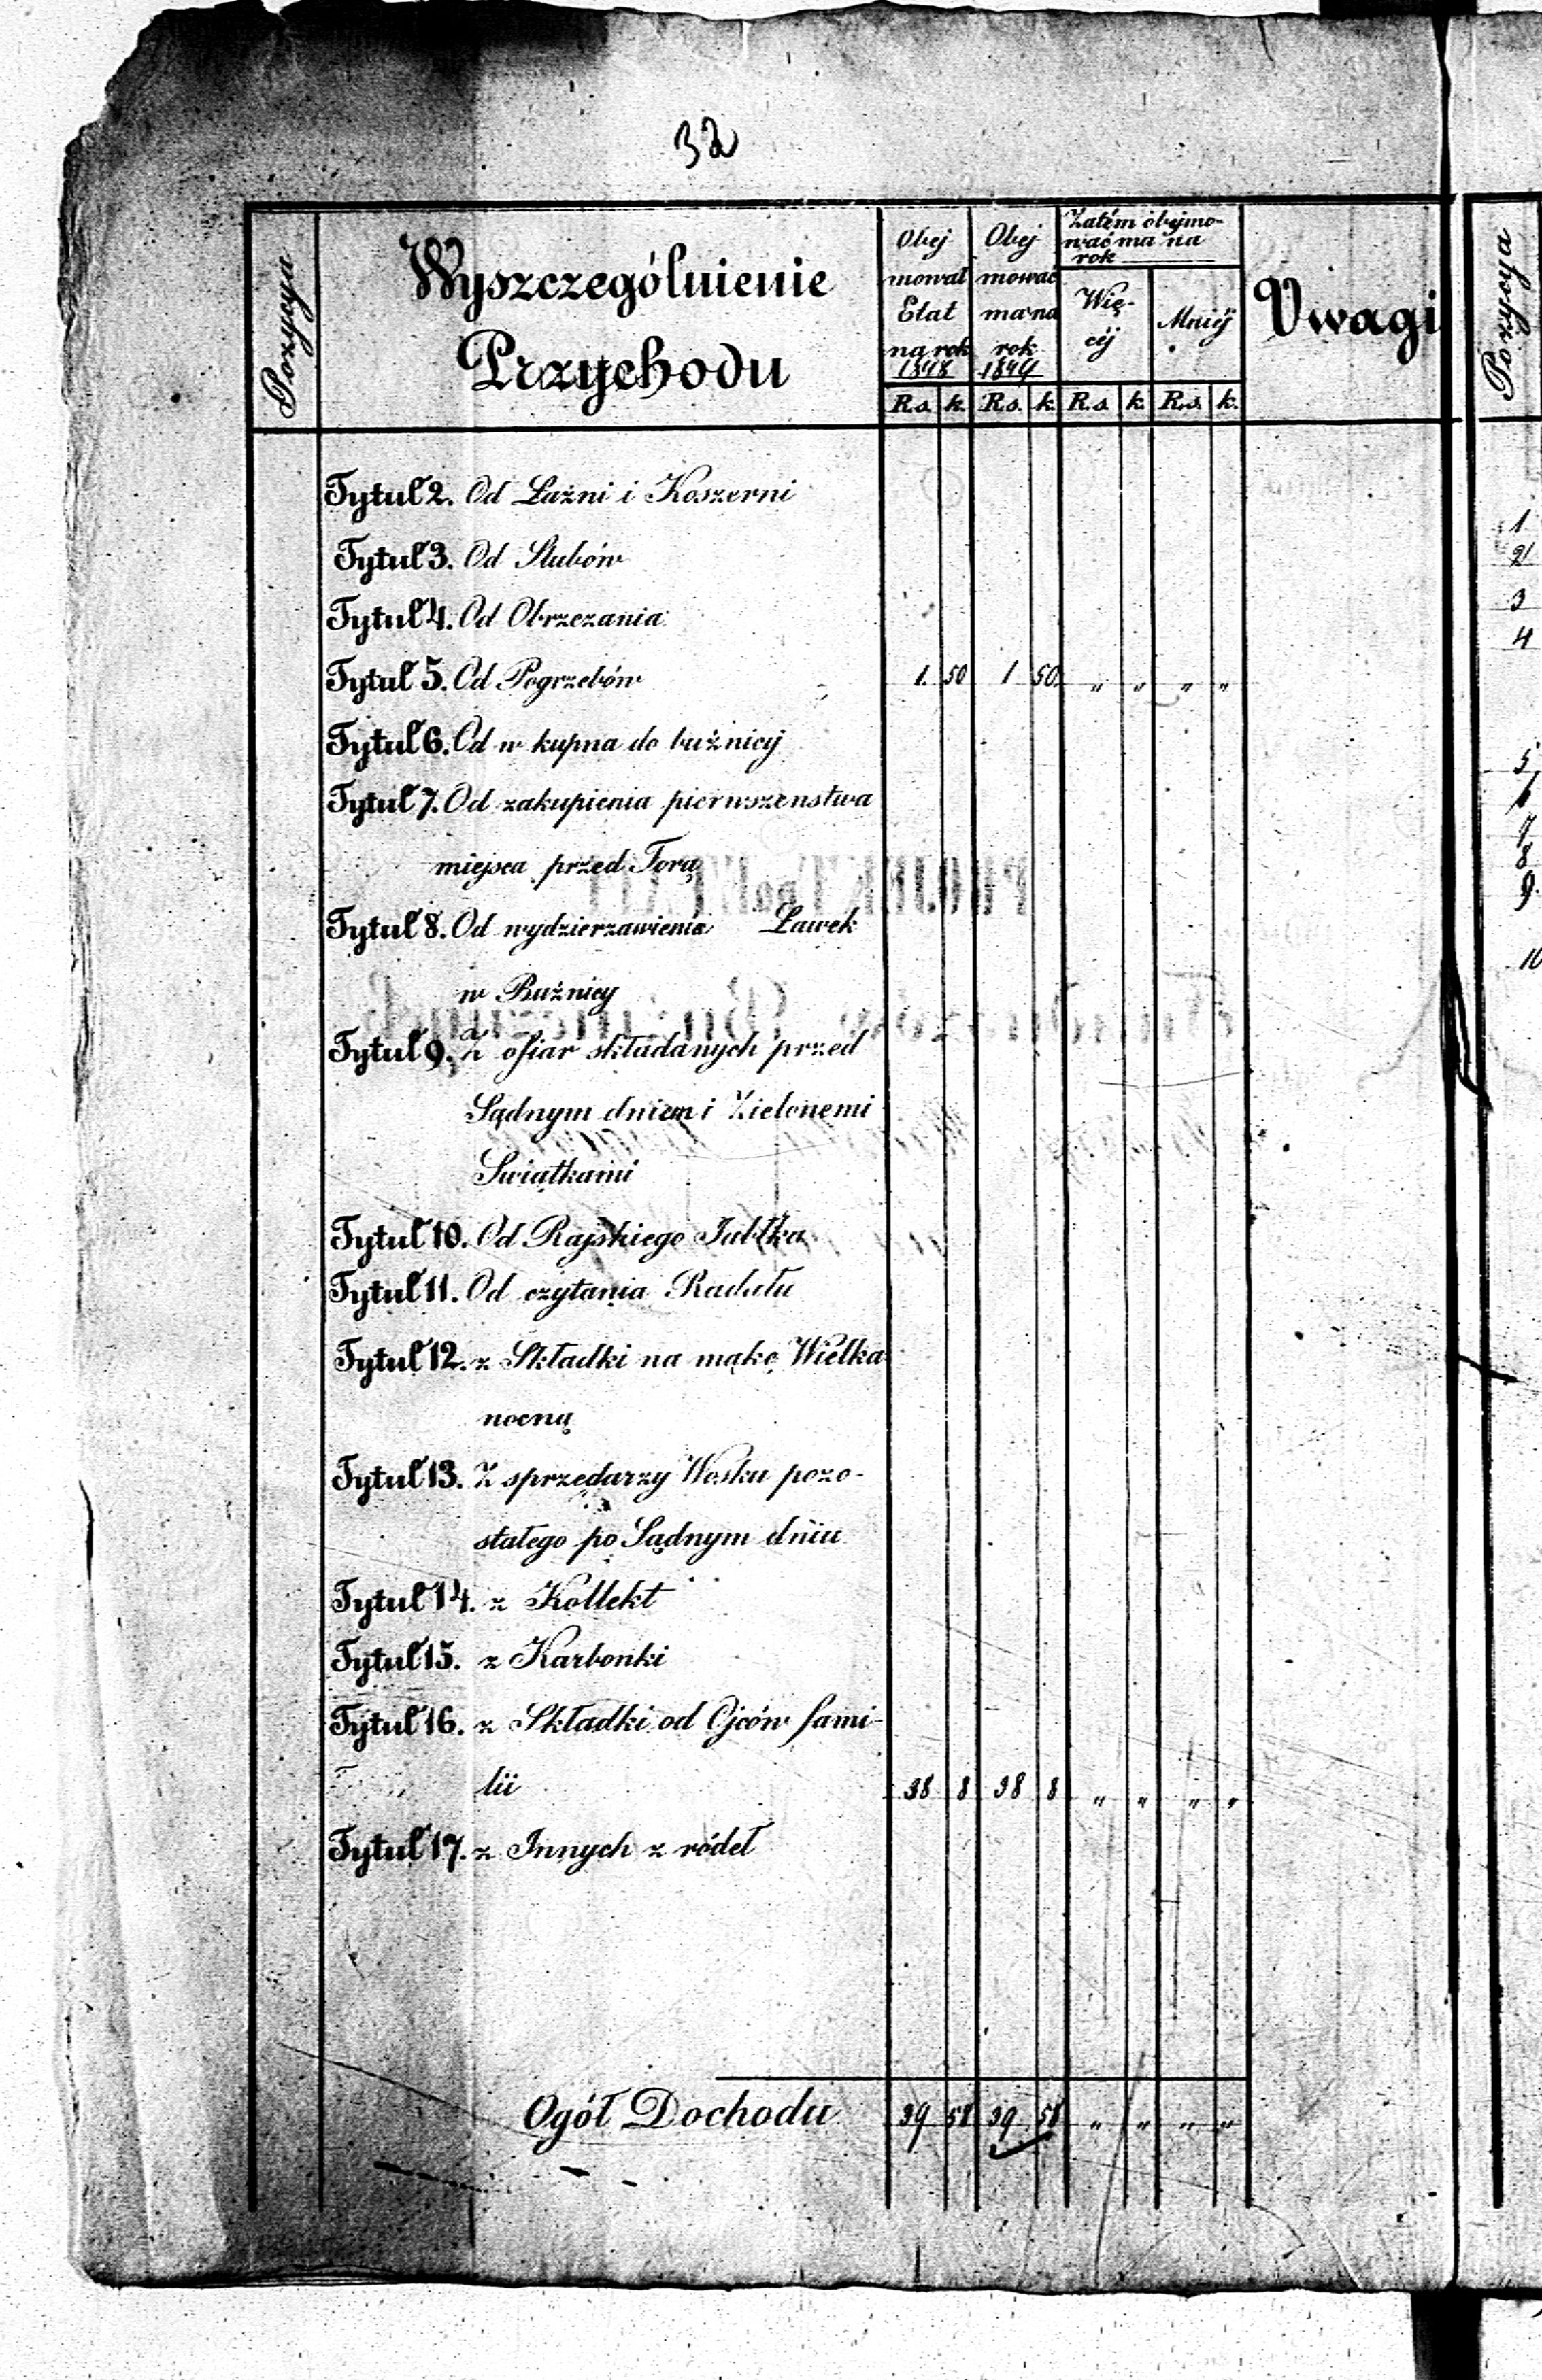 32
Pozycya
Wyszczególnienie
Przychodu
Obej
mował
Etat
na rok
1848
Obej
mować
ma na
rok
1849
Zatém obejmo-
wać ma na
rok
Wię-
céj
Mniéj
R.s. k. R.s. k. R.s. k. R.s. k.
Uwagi
Pozycya
Tytuł 2. Od Łaźni i Koszerni
Tytuł 3. Od Slubów
Tytuł 4. Od Obrzezania
Tytuł 5. Od Pogrzebów 1. 50 1 50. " " " "
Tytuł 6. Od w kupna do bużnicy
Tytuł 7. Od zakupienia pierwszenstwa
miejsca przed Torą
Tytuł 8. Od wydzierzawienia Ławek
w Bużnicy
Tytuł 9. Z ofiar składanych przed
Sądnym dniem i Zielonemi
Swiątkami
Tytuł 10. Od Rajskiego Jabłka
Tytuł 11. Od czytania Radału
Tytuł 12. z Składki na mąkę Wielka
nocną
Tytuł 13. Z sprzedarzy Wosku pozo-
stałego po Sądnym dniu
Tytuł 14. z Kollekt
Tytuł 15. z Karbonki
Tytuł 16. z Składki od Ojców fami-
lii 38 8 38 8 " " " "
Tytuł 17. z Innych z ródeł
Ogół Dochodu 39 58 39 58 " " " "
1
2
3
4
5
6
7
8
9.
10